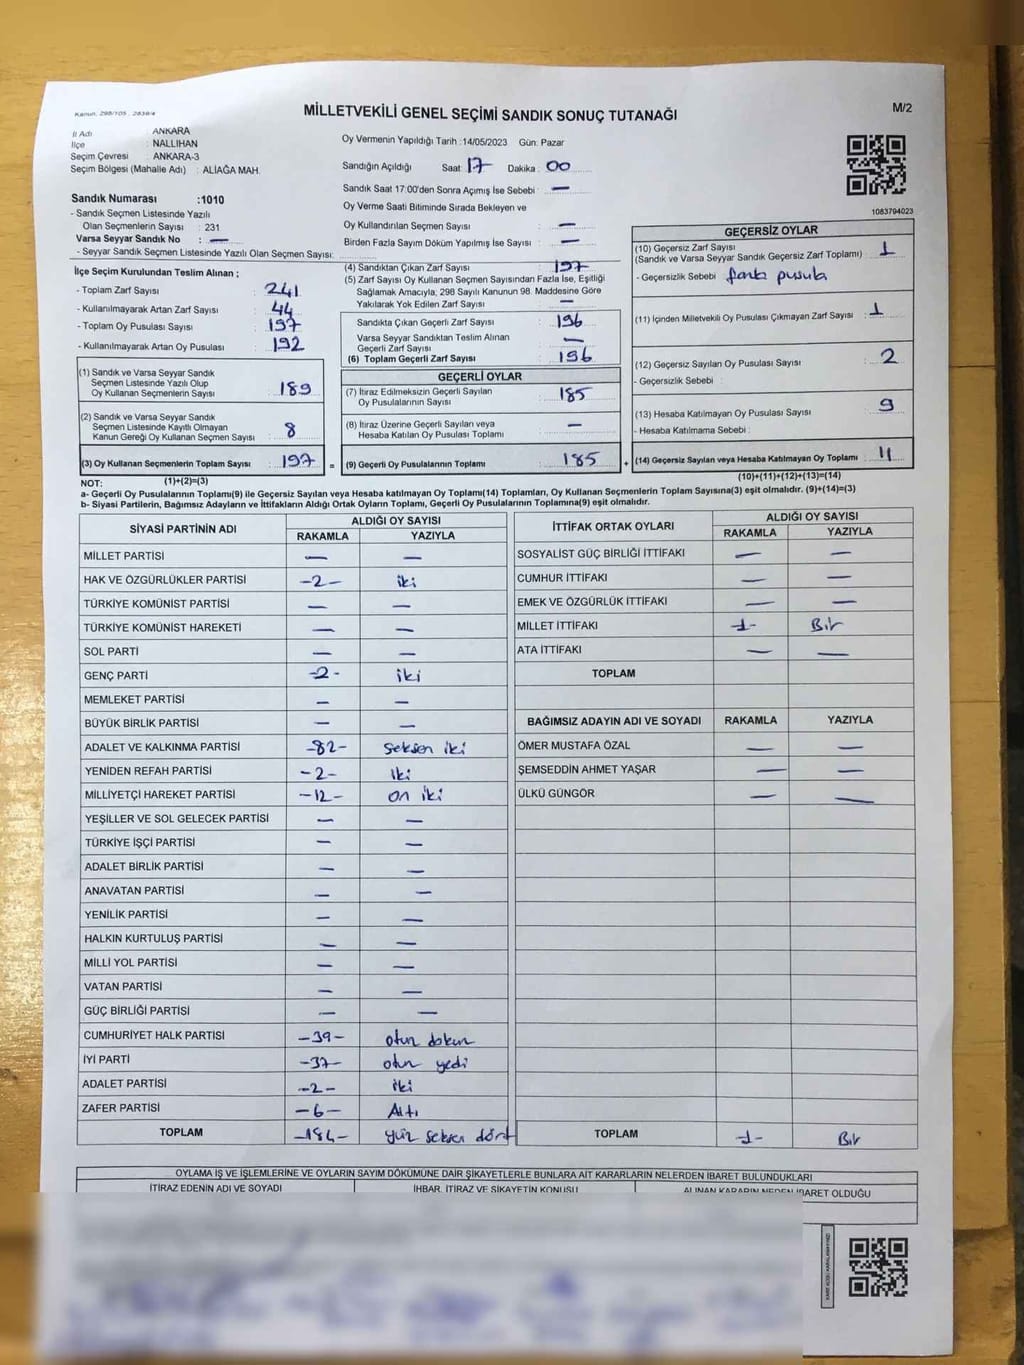 Kanun. 298/105 , 2839/4
MİLLETVEKİLİ GENEL SEÇİMİ SANDIK SONUÇ TUTANAĞI
M/2
İl Adı : ANKARA
İlçe : NALLIHAN
Seçim Çevresi : ANKARA-3
Seçim Bölgesi (Mahalle Adı) : ALİAĞA MAH.
Sandık Numarası :1010
- Sandık Seçmen Listesinde Yazılı
Olan Seçmenlerin Sayısı : 231
Varsa Seyyar Sandık No : —
- Seyyar Sandık Seçmen Listesinde Yazılı Olan Seçmen Sayısı:
Oy Vermenin Yapıldığı Tarih :14/05/2023 Gün: Pazar
Sandığın Açıldığı Saat: 17 Dakika: 00
Sandık Saat 17:00'den Sonra Açımış İse Sebebi : —
Oy Verme Saati Bitiminde Sırada Bekleyen ve
Oy Kullandırılan Seçmen Sayısı : —
Birden Fazla Sayım Döküm Yapılmış İse Sayısı : —
1083794023
İlçe Seçim Kurulundan Teslim Alınan ;
- Toplam Zarf Sayısı : 241
- Kullanılmayarak Artan Zarf Sayısı : 44
- Toplam Oy Pusulası Sayısı : 197
- Kullanılmayarak Artan Oy Pusulası : 192
(1) Sandık ve Varsa Seyyar Sandık
Seçmen Listesinde Yazılı Olup
Oy Kullanan Seçmenlerin Sayısı : 189
(2) Sandık ve Varsa Seyyar Sandık
Seçmen Listesinde Kayıtlı Olmayan
Kanun Gereği Oy Kullanan Seçmen Sayısı : 8
(3) Oy Kullanan Seçmenlerin Toplam Sayısı : 197
(4) Sandıktan Çıkan Zarf Sayısı : 197
(5) Zarf Sayısı Oy Kullanan Seçmen Sayısından Fazla İse, Eşitliği
Sağlamak Amacıyla, 298 Sayılı Kanunun 98. Maddesine Göre
Yakılarak Yok Edilen Zarf Sayısı : —
Sandıkta Çıkan Geçerli Zarf Sayısı : 196
Varsa Seyyar Sandıktan Teslim Alınan
Geçerli Zarf Sayısı : —
(6) Toplam Geçerli Zarf Sayısı : 196
GEÇERLİ OYLAR
(7) İtiraz Edilmeksizin Geçerli Sayılan
Oy Pusulalarının Sayısı : 185
(8) İtiraz Üzerine Geçerli Sayılan veya
Hesaba Katılan Oy Pusulası Toplamı : —
= (9) Geçerli Oy Pusulalarının Toplamı : 185
GEÇERSİZ OYLAR
(10) Geçersiz Zarf Sayısı
(Sandık ve Varsa Seyyar Sandık Geçersiz Zarf Toplamı) : 1
- Geçersizlik Sebebi : fazla pusula
(11) İçinden Milletvekili Oy Pusulası Çıkmayan Zarf Sayısı : 1
(12) Geçersiz Sayılan Oy Pusulası Sayısı : 2
- Geçersizlik Sebebi :
(13) Hesaba Katılmayan Oy Pusulası Sayısı : 9
- Hesaba Katılmama Sebebi :
+ (14) Geçersiz Sayılan veya Hesaba Katılmayan Oy Toplamı : 11
NOT: (1)+(2)=(3)
(10)+(11)+(12)+(13)=(14)
a- Geçerli Oy Pusulalarının Toplamı(9) ile Geçersiz Sayılan veya Hesaba katılmayan Oy Toplamı(14) Toplamları, Oy Kullanan Seçmenlerin Toplam Sayısına(3) eşit olmalıdır. (9)+(14)=(3)
b- Siyasi Partilerin, Bağımsız Adayların ve İttifakların Aldığı Ortak Oyların Toplamı, Geçerli Oy Pusulalarının Toplamına(9) eşit olmalıdır.
SİYASİ PARTİNİN ADI ALDIĞI OY SAYISI
RAKAMLA YAZIYLA
MİLLET PARTİSİ — —
HAK VE ÖZGÜRLÜKLER PARTİSİ -2- iki
TÜRKİYE KOMÜNİST PARTİSİ — —
TÜRKİYE KOMÜNİST HAREKETİ — —
SOL PARTİ — —
GENÇ PARTİ -2- iki
MEMLEKET PARTİSİ — —
BÜYÜK BİRLİK PARTİSİ — —
ADALET VE KALKINMA PARTİSİ -82- seksen iki
YENİDEN REFAH PARTİSİ -2- iki
MİLLİYETÇİ HAREKET PARTİSİ -12- on iki
YEŞİLLER VE SOL GELECEK PARTİSİ — —
TÜRKİYE İŞÇİ PARTİSİ — —
ADALET BİRLİK PARTİSİ — —
ANAVATAN PARTİSİ — —
YENİLİK PARTİSİ — —
HALKIN KURTULUŞ PARTİSİ — —
MİLLİ YOL PARTİSİ — —
VATAN PARTİSİ — —
GÜÇ BİRLİĞİ PARTİSİ — —
CUMHURİYET HALK PARTİSİ -39- otuz dokuz
İYİ PARTİ -37- otuz yedi
ADALET PARTİSİ -2- iki
ZAFER PARTİSİ -6- Altı
TOPLAM -184- yüz seksen dört
İTTİFAK ORTAK OYLARI ALDIĞI OY SAYISI
RAKAMLA YAZIYLA
SOSYALİST GÜÇ BİRLİĞİ İTTİFAKI — —
CUMHUR İTTİFAKI — —
EMEK VE ÖZGÜRLÜK İTTİFAKI — —
MİLLET İTTİFAKI -1- Bir
ATA İTTİFAKI — —
TOPLAM
BAĞIMSIZ ADAYIN ADI VE SOYADI RAKAMLA YAZIYLA
ÖMER MUSTAFA ÖZAL — —
ŞEMSEDDİN AHMET YAŞAR — —
ÜLKÜ GÜNGÖR — —
TOPLAM -1- Bir
OYLAMA İŞ VE İŞLEMLERİNE VE OYLARIN SAYIM DÖKÜMÜNE DAİR ŞİKAYETLERLE BUNLARA AİT KARARLARIN NELERDEN İBARET BULUNDUKLARI
İTİRAZ EDENİN ADI VE SOYADI İHBAR, İTİRAZ VE ŞİKAYETİN KONUSU ALINAN KARARIN NEDEN İBARET OLDUĞU